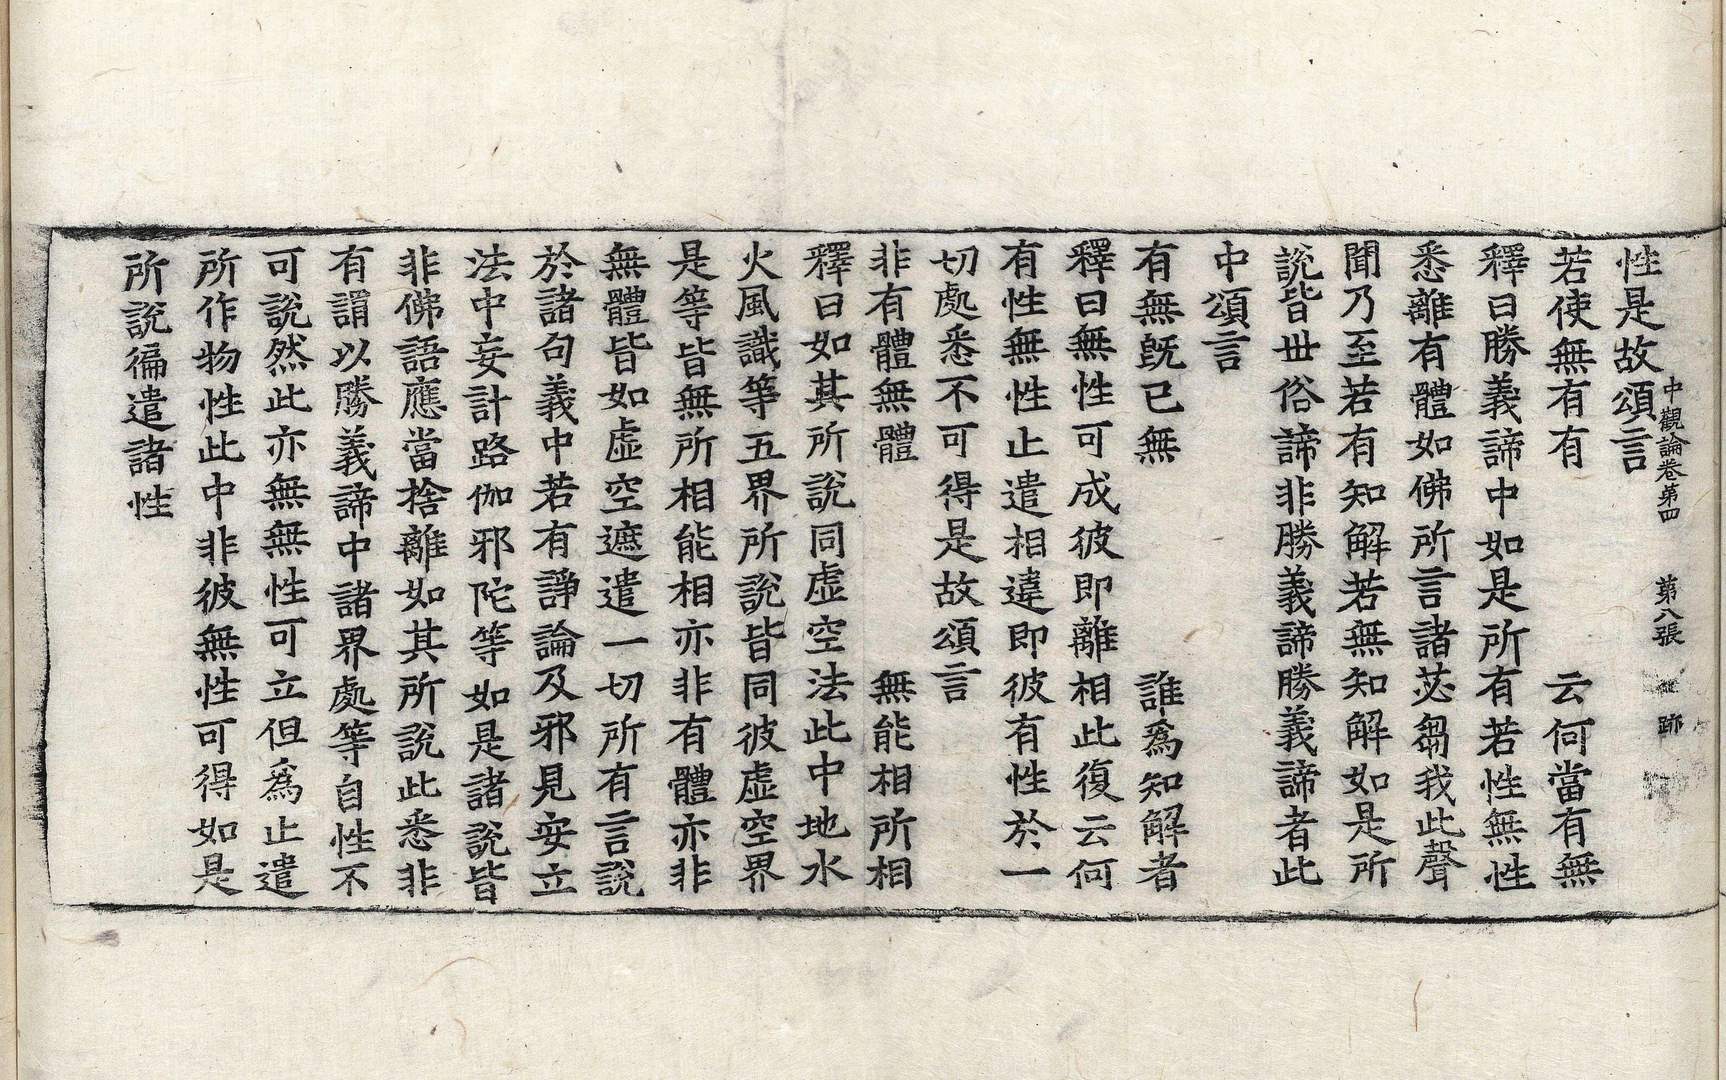 中觀論卷第四 第八張 跡
性是故頌言
若使無有有 云何當有無
釋曰勝義諦中如是所有若性無性
悉離有體如佛所言諸苾芻我此聲
聞乃至若有知解若無知解如是所
說皆世俗諦非勝義諦勝義諦者此
中頌言
有無旣已無 誰爲知解者
釋曰無性可成彼即離相此復云何
有性無性止遣相違即彼有性於一
切處悉不可得是故頌言
非有體無體 無能相所相
釋曰如其所說同虛空法此中地水
火風識等五界所說皆同彼虛空界
是等皆無所相能相亦非有體亦非
無體皆如虛空遮遣一切所有言說
於諸句義中若有諍論及邪見安立
法中妄計路伽邪陀等如是諸說皆
非佛語應當捨離如其所說此悉非
有謂以勝義諦中諸界處等自性不
可說然此亦無無性可立但爲止遣
所作物性此中非彼無性可得如是
所說徧遣諸性